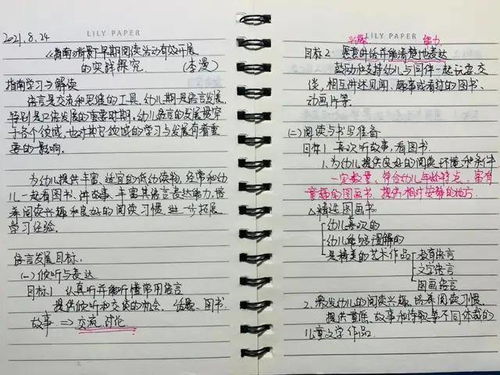 LILY PAPER
2021.8.24
《指南》背景下早期阅读活动有效开展
的实践探究 (李漫)
指南学习与解读
语言是交流和思维的工具。幼儿期是语言发展,
特别是口语发展的重要时期。幼儿语言的发展贯穿
于各个领域,也对其它领域的学习与发展有着重
要的影响。
为幼儿提供丰富、适宜的低幼读物,经常和幼
儿一起看图书、讲故事,丰富其语言表达能力,培
养阅读兴趣和良好的阅读习惯,进一步拓展
学习经验。
语言发展目标:
(一)倾听与表达
目标1 认真听并能听懂常用语言
提供倾听和交谈的机会。话题、图书、
故事 ⇒ 交流、讨论
LILY PAPER
兴趣 能力
目标2 愿意讲话并能清楚地表达
鼓励和支持幼儿与同伴一起玩耍、交
谈,相互讲述见闻、趣事或看过的图书、
动画片等。
(二)阅读与书写准备
目标1 喜欢听故事,看图书
1.为幼儿提供良好的阅读环境和条件
一定数量、符合幼儿年龄特点、富有
童趣的图画书 提供相对安静的地方
精选图画书
幼儿喜欢的
幼儿能够理解的
是精美的艺术作品 教育语言
文学语言
图画语言
2.激发幼儿的阅读兴趣,培养阅读习惯
提供童谣、故事和诗歌等不同体裁的
儿童文学作品